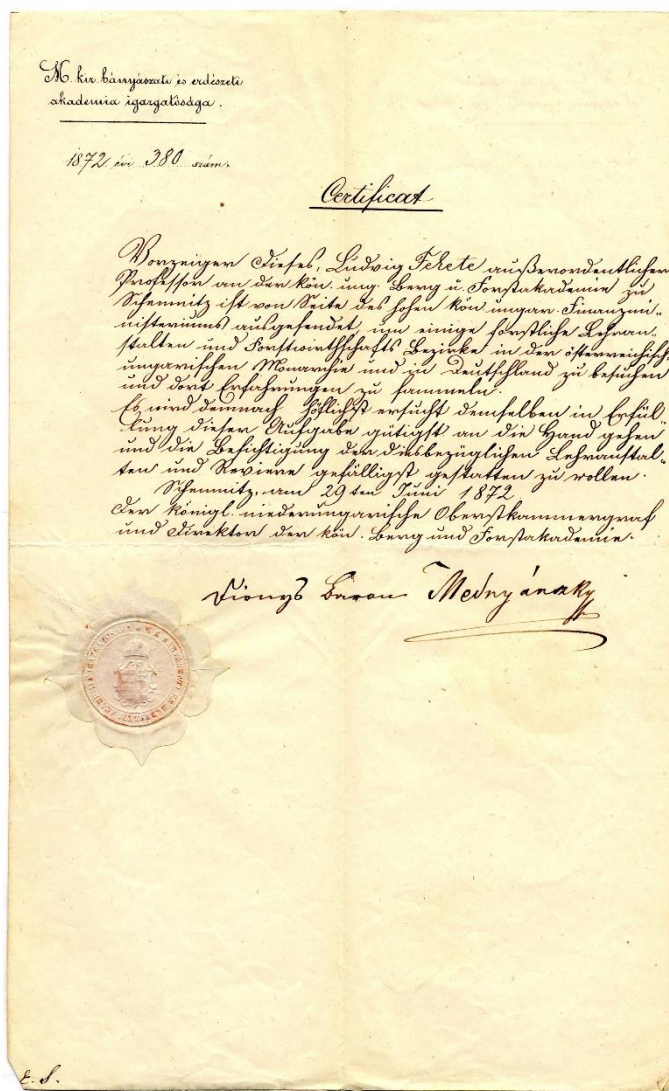 M. kir. bányászati és erdészeti
akademia igazgatósága.
1872 évi 380 szám.
Certificat
Vorzeiger Dieses, Ludvig Fekete außerordentlicher
Professor an der kön. ung. Berg u. Forstakademie zu
Schemnitz ist von Seite des hohen kön. ungar. Finanzmi-
nisteriums ausgesendet, um einige forstliche Lehran-
stalten und Forstwirthschafts Bezirke in der österreichisch
ungarischen Monarchie und in Deutschland zu besuchen
und dort Erfahrungen zu sammeln.
Es wird demnach höflichst ersucht demselben in Erfül-
lung dieser Aufgabe gütigst an die Hand gehen
und die Besichtigung der diesbezüglichen Lehranstal-
ten und Reviere gefälligst gestatten zu wollen.
Schemnitz, am 29ten Juni 1872
Der königl. niederungarische Oberstkammergraf
und Direktor der kön. Berg und Forstakademie.
Dionys Baron Mednyánszky
L. S.